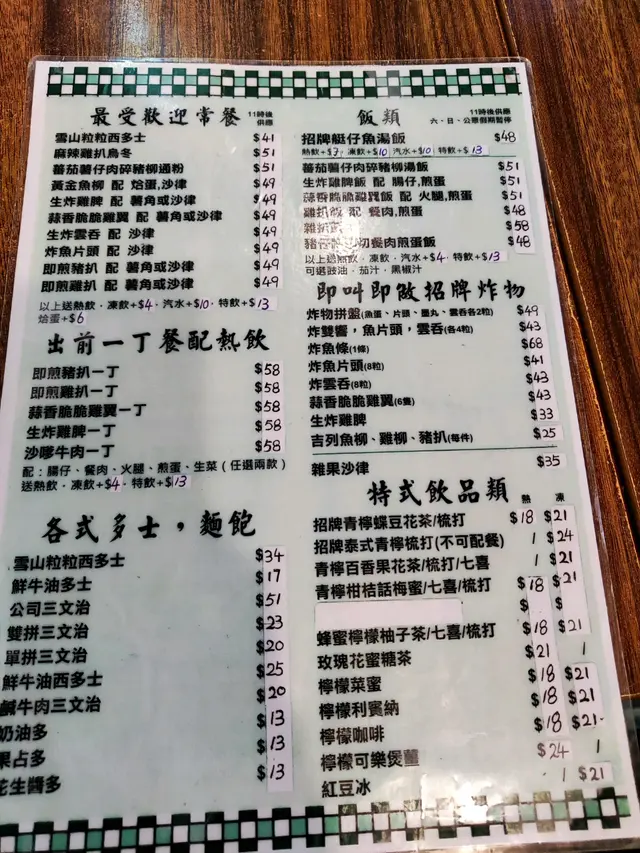 最受歡迎常餐 11時後供應
雪山粒粒西多士 $41
麻辣雞扒烏冬 $51
蕃茄薯仔肉碎豬柳通粉 $51
黃金魚柳 配 烚蛋,沙律 $49
生炸雞脾 配 薯角或沙律 $49
蒜香脆脆雞翼 配 薯角或沙律 $49
生炸雲吞 配 沙律 $49
炸魚片頭 配 沙律 $49
即煎豬扒 配 薯角或沙律 $49
即煎雞扒 配 薯角或沙律 $49
以上送熱飲﹒凍飲+$4﹒汽水+$10﹒特飲+$13
烚蛋+$6
出前一丁餐配熱飲
即煎豬扒一丁 $58
即煎雞扒一丁 $58
蒜香脆脆雞翼一丁 $58
生炸雞脾一丁 $58
沙嗲牛肉一丁 $58
配：腸仔、餐肉、火腿、煎蛋、生菜（任選兩款）
送熱飲﹒凍飲+$4﹒特飲+$13
各式多士，麵飽
雪山粒粒西多士 $34
鮮牛油多士 $17
公司三文治 $51
雙拼三文治 $23
單拼三文治 $20
鮮牛油西多士 $25
鹹牛肉三文治 $20
奶油多 $13
果占多 $13
花生醬多 $13
飯類 11時後供應
六、日、公眾假期暫停
招牌艇仔魚湯飯 $48
熱飲+$7 凍飲+$10 汽水+$10 特飲+$13
蕃茄薯仔肉碎豬柳湯飯 $51
生炸雞脾飯 配 腸仔,煎蛋 $51
蒜香脆脆雞翼飯 配 火腿,煎蛋 $51
雞扒飯 配 餐肉,煎蛋 $48
雜扒飯 $58
豬仔 切餐肉煎蛋飯 $48
以上送熱飲﹒凍飲+$4﹒特飲+$13
可選豉油﹒茄汁﹒黑椒汁
即叫即做招牌炸物
炸物拼盤(魚蛋、片頭、墨丸、雲吞各2粒) $49
炸雙響，魚片頭，雲吞(各4粒) $43
炸魚條(1條) $68
炸魚片頭(8粒) $41
炸雲吞(8粒) $43
蒜香脆脆雞翼(6隻) $43
生炸雞脾 $33
吉列魚柳、雞柳、豬扒(每件) $25
雜果沙律 $35
特式飲品類 熱 凍
招牌青檸蝶豆花茶/梳打 $18 $21
招牌泰式青檸梳打(不可配餐) / $24
青檸百香果花茶/梳打/七喜 / $21
青檸柑桔話梅蜜/七喜/梳打 $18 $21
$ $
蜂蜜檸檬柚子茶/七喜/梳打 $18 $21
玫瑰花蜜糖茶 $21 /
檸檬菜蜜 $18 $21
檸檬利賓納 $18 $21
檸檬咖啡 $18 $21
檸檬可樂煲薑 $24 /
紅豆冰 / $21